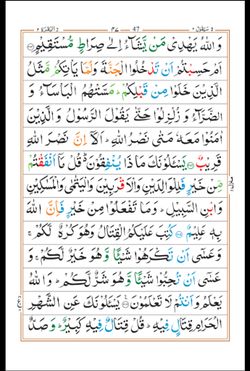 سيقول ٢ 47 البقرة ٢
وَاللّٰهُ يَهْدِىْ مَنْ يَّشَآءُ اِلٰى صِرَاطٍ مُّسْتَقِيْمٍ
اَمْ حَسِبْتُمْ اَنْ تَدْخُلُوا الْجَنَّةَ وَلَمَّا يَاْتِكُمْ مَّثَلُ
الَّذِيْنَ خَلَوْا مِنْ قَبْلِكُمْ ؕ مَسَّتْهُمُ الْبَاْسَآءُ وَ
الضَّرَّآءُ وَ زُلْزِلُوْا حَتّٰى يَقُوْلَ الرَّسُوْلُ وَ الَّذِيْنَ
اٰمَنُوْا مَعَهٗ مَتٰى نَصْرُ اللّٰهِ ؕ اَلَاۤ اِنَّ نَصْرَ اللّٰهِ
قَرِيْبٌ يَسْـَٔلُوْنَكَ مَاذَا يُنْفِقُوْنَ ؕ قُلْ مَاۤ اَنْفَقْتُمْ
مِّنْ خَيْرٍ فَلِلْوَالِدَيْنِ وَالْاَقْرَبِيْنَ وَالْيَتٰمٰى وَالْمَسٰكِيْنِ
وَابْنِ السَّبِيْلِ ؕ وَمَا تَفْعَلُوْا مِنْ خَيْرٍ فَاِنَّ اللّٰهَ
بِهٖ عَلِيْمٌ كُتِبَ عَلَيْكُمُ الْقِتَالُ وَهُوَ كُرْهٌ لَّكُمْ ۚ وَ
عَسٰۤى اَنْ تَكْرَهُوْا شَيْـًٔا وَّ هُوَ خَيْرٌ لَّكُمْ ۚ وَ
عَسٰۤى اَنْ تُحِبُّوْا شَيْـًٔا وَّ هُوَ شَرٌّ لَّكُمْ ؕ وَ اللّٰهُ
يَعْلَمُ وَ اَنْتُمْ لَا تَعْلَمُوْنَ يَسْـَٔلُوْنَكَ عَنِ الشَّهْرِ
الْحَرَامِ قِتَالٍ فِيْهِ ؕ قُلْ قِتَالٌ فِيْهِ كَبِيْرٌ ؕ وَ صَدٌّ